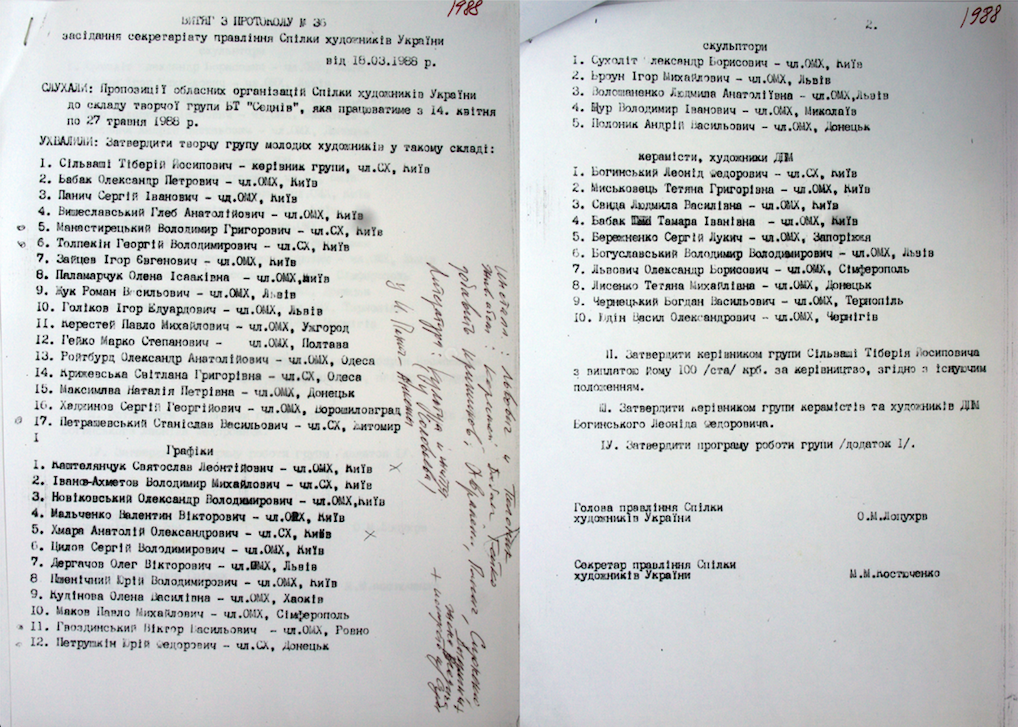 1988
ВИТЯГ З ПРОТОКОЛУ № 36
засідання секретаріату правління Спілки художників України
від 18.03.1988 р.
СЛУХАЛИ: Пропозиції обласних організацій Спілки художників України
до складу творчої групи БТ "Седнів", яка працюватиме з 14. квітня
по 27 травня 1988 р.
УХВАЛИЛИ: Затвердити творчу групу молодих художників у такому складі:
1. Сільваші Тіберій Йосипович - керівник групи, чл.СХ, Київ
2. Бабак Олександр Петрович - чл.ОМХ, Київ
3. Панич Сергій Іванович - чл.ОМХ, Київ
4. Вишеславський Глеб Анатолійович - чл.ОМХ, Київ
5. Манастирецький Володимир Григорович - чл.СХ, Київ
6. Толпекін Георгій Володимирович - чл.СХ, Київ
7. Зайцев Ігор Євгенович - чл.ОМХ, Київ
8. Паламарчук Олена Ісааківна - чл.ОМХ,Київ
9. Жук Роман Васильович - чл.ОМХ, Львів
10. Голіков Ігор Едуардович - чл.ОМХ, Львів
11. Керестей Павло Михайлович - чл.ОМХ, Ужгород
12. Гейко Марко Степанович - чл.ОМХ, Полтава
13. Ройтбурд Олександр Анатолійович - чл.ОМХ, Одеса
14. Крижевська Світлана Григорівна - чл.СХ, Одеса
15. Максимова Наталія Петрівна - чл.ОМХ, Донецьк
16. Хаджинов Сергій Георгійович - чл.ОМХ, Ворошиловград
17. Петрашевський Станіслав Васильович - чл.СХ, Житомир
I
Графіки
1. Каштелянчук Святослав Леонтійович - чл.ОМХ, Київ х
2. Івано-Ахметов Володимир Михайлович - чл.СХ, Київ
3. Новіковський Олександр Володимирович - чл.ОМХ,Київ
4. Мальченко Валентин Вікторович - чл.ОМХ, Київ
5. Хмара Анатолій Олександрович - чл.СХ, Київ х
6. Цилов Сергій Володимирович - чл.ОМХ, Київ
7. Дергачов Олег Вікторович - чл.ОМХ, Львів
8 Пшенічний Юрій Володимирович - чл.ОМХ, Київ
9. Кудінова Олена Василівна - чл.ОМХ, Хаоків
10. Маков Павло Михайлович - чл.ОМХ, Сімферополь
11. Гвоздинський Віктор Васильович - чл.ОМХ, Ровно
12. Петрушкін Юрій Федорович - чл.СХ, Донецьк
1988
2.
скульптори
1. Сухоліт Олександр Борисович - чл.ОМХ, Київ
2. Броун Ігор Михайлович - чл.ОМХ, Львів
3. Волошаненко Людмила Анатоліївна - чл.ОМХ,Львів
4. Мур Володимир Іванович - чл.ОМХ, Миколаїв
5. Полоник Андрій Васильович - чл.ОМХ, Донецьк
керамісти, художники ДПМ
1. Богинський Леонід Федорович - чл.СХ, Київ
2. Миськовець Тетяна Григорівна - чл.ОМХ, Київ
3. Свида Людмила Василівна - чл.ОМХ, Київ
4. Бабак Тамара Іванівна - чл.ОМХ, Київ
5. Бережненко Сергій Лукич - чл.ОМХ, Запоріжжя
6. Богуславський Володимир Володимирович - чл.ОМХ, Львів
7. Львович Олександр Борисович - чл.ОМХ, Сімферополь
8. Лисенко Тетяна Михайлівна - чл.ОМХ, Донецьк
9. Чернецький Богдан Васильович - чл.ОМХ, Тернопіль
10. Юдін Васил Олександрович - чл.ОМХ, Чернігів
II. Затвердити керівником групи Сільваші Тіберія Йосиповича
з виплатою йому 100 /ста/ крб. за керівництво, згідно з існуючим
положенням.
III. Затвердити керівником групи керамістів та художників ДПМ
Богинського Леоніда Федоровича.
IУ. Затвердити програму роботи групи /додаток I/.
Голова правління Спілки
художників України О.М.Лопухов
Секретар правління Спілки
художників України М.М.Костюченко